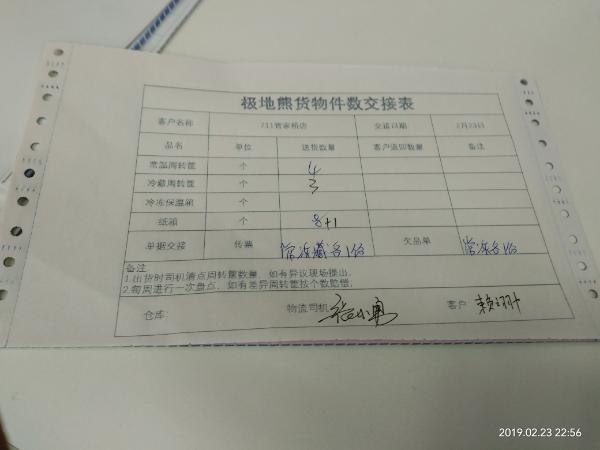 极地熊货物件数交接表
客户名称 711管家桥店 交接日期 2月23日
品名 单位 送货数量 客户返回数量 备注
常温周转筐 个 4
冷藏周转筐 个 3
冷冻保温箱 个
纸箱 个 8+1
单据交接 传票 常冻藏各1份 欠品单 常冻各1份
备注
1.出货时司机清点周转筐数量，如有异议现场提出。
2.每周进行一次盘点，如有差异周转筐按个数赔偿。
仓库: 物流司机 客户
2019.02.23 22:56